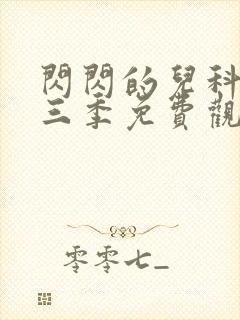 閃閃的兒科
三季免費觀
零零七_